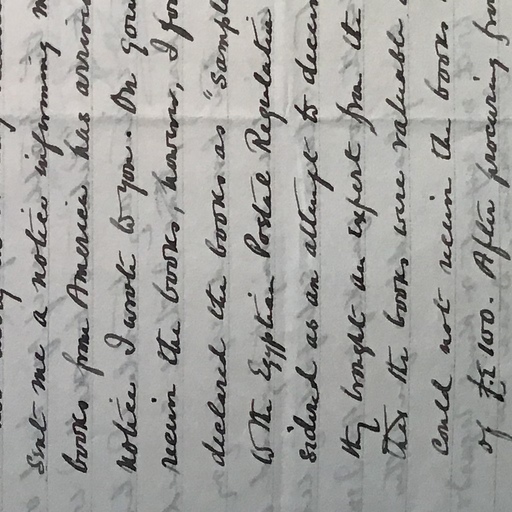 sent me a notice informing m
books from America has arrive
notice I wrote to you. On goin
receive the books, however, I fou
declared the books as "sample
to the Egyptian Postal Regulation
sidered as an attempt to deceiv
They brought an expert from the
that the books were valuable
could not receive the books
of £E 100. After procuring fro